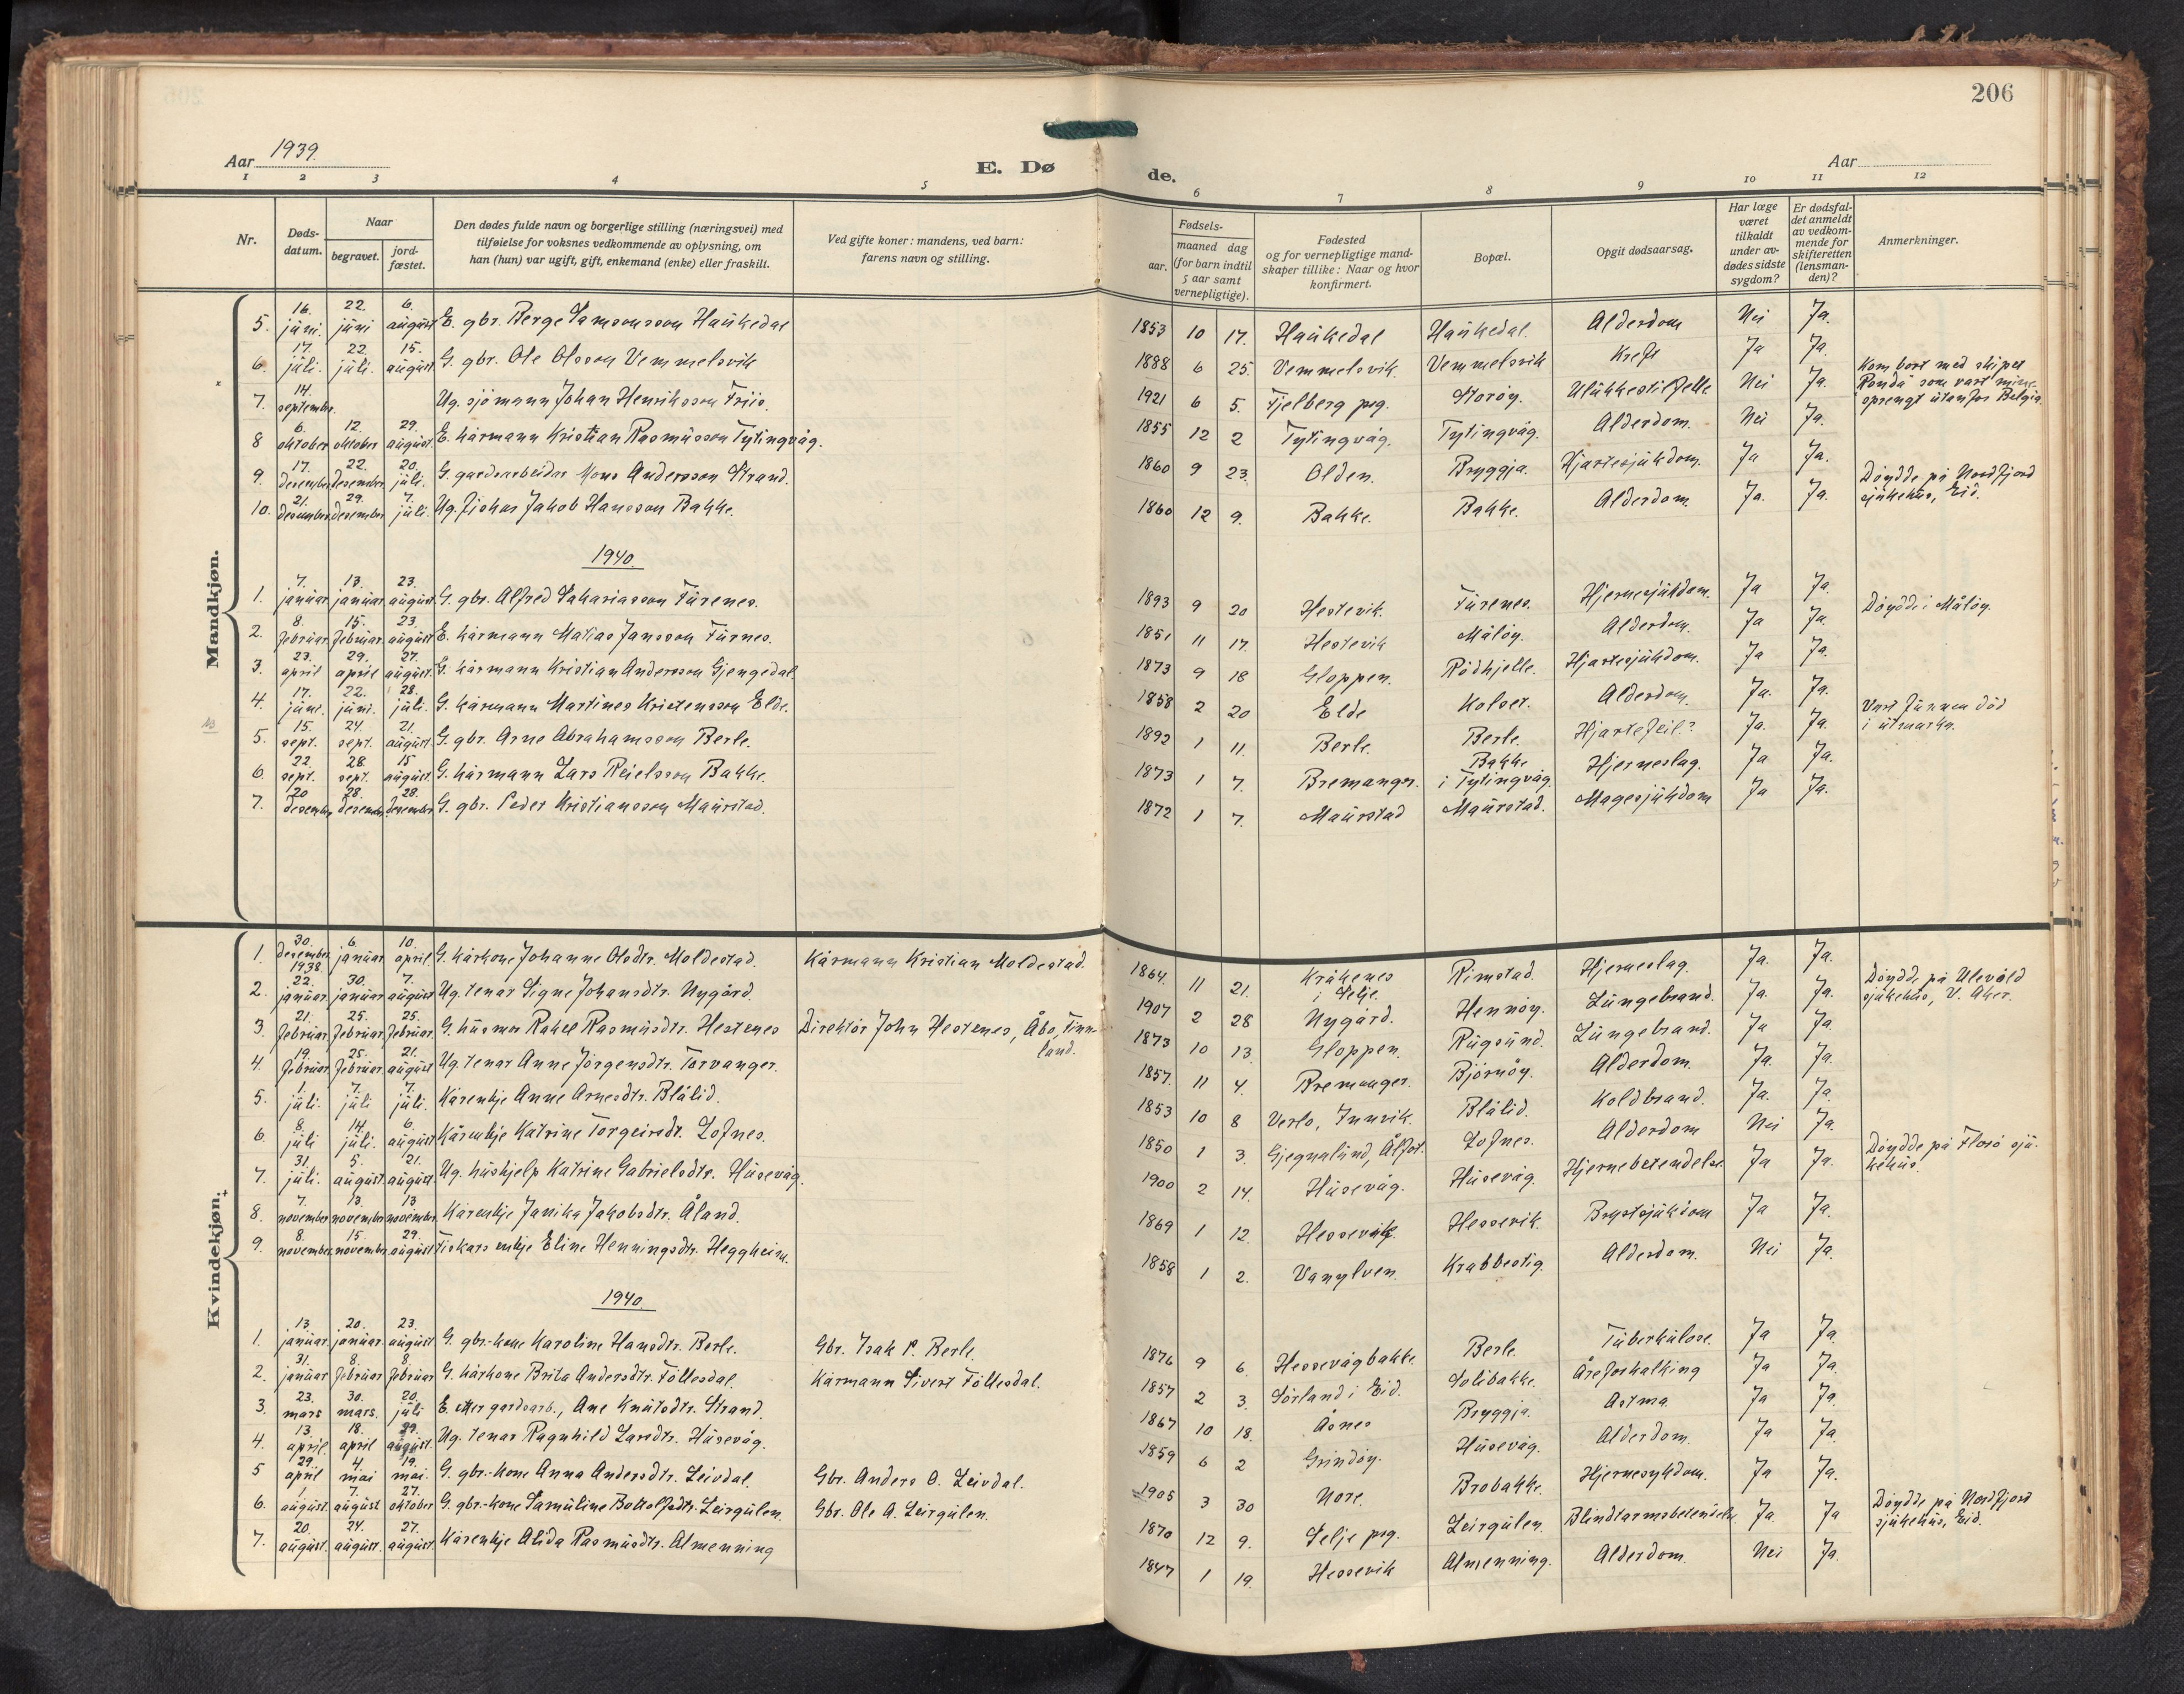 206
Aar 1939.
E. Dø
de.
Aar
1 2 3 4 5 6 7 8 9 10 11 12
Nr.
Døds-
datum.
Naar
begravet.
jord-
fæstet.
Den dødes fulde navn og borgerlige stilling (næringsvei) med
tilføielse for voksnes vedkommende av oplysning, om
han (hun) var ugift, gift, enkemand (enke) eller fraskilt.
Ved gifte koner: mandens, ved barn:
farens navn og stilling.
Fødsels-
aar.
maaned dag
(for barn indtil
5 aar samt
vernepligtige).
Fødested
og for vernepligtige mand-
skaper tillike: Naar og hvor
konfirmert.
Bopæl.
Opgit dødsaarsag.
Har læge
været
tilkaldt
under av-
dødes sidste
sygdom?
Er dødsfal-
det anmeldt
av vedkom-
mende for
skifteretten
(lensman-
den)?
Anmerkninger.
Mandkjøn.
5. 16. juni. 22. juni 6. august E. gbr. Berge Samsonsson Haukedal 1853 10 17. Haukedal Haukedal. Alderdom Nei Ja.
6. 17. juli. 22. juli. 15. august G. gbr. Ole Olsson Vemmelsvik 1888 6 25. Vemmelsvik. Vemmelsvik Kreft Ja Ja.
7. 14. septembr. Ug. sjömann Johan Henriksson Friis. 1921 6 5. Fjelberg psg. Storöy. Ulukkestilfelle. Nei Ja. Kom bort med skipet
"Ronda" som vart mine-
sprengt utanfor Belgia.
8 6. oktober 12. oktober 29. august E. kårmann Kristian Rasmusson Tytingvåg. 1855 12 2 Tytingvåg. Tytingvåg. Alderdom. Nei Ja.
9. 17. desember 22. desember 20. juli. G. gardsarbeidar Mons Andersson Strand. 1860 9 23. Olden. Bryggja. Hjartesjukdom. Ja Ja. Döydde på Nordfjord
sjukehus, Eid.
10. 21. desember 29. desember 7. juli. Ug. fiskar Jakob Hansson Bakke. 1860 12 9. Bakke. Bakke. Alderdom. Ja. Ja.
1940.
1. 7. januar. 13. januar. 23. august. G. gbr. Alfred Sakariasson Furenes. 1893 9 20 Hestevik. Furenes. Hjernesjukdom. Ja Ja. Döydde i Målöy.
2. 8. februar. 15. februar. 23. august E. kårmann Matias Jansson Furnes. 1851 11 17. Hestevik Målöy. Alderdom. Ja Ja.
3. 23. april 29. april 27. august. G. kårmann Kristian Andersson Gjengedal. 1873 9 18 Gloppen. Rödhjelle. Hjartesjukdom. Ja Ja.
4. 17. juni. 22. juni. 28. juli. G. kårmann Martines Kristensson Elde. 1858 2 20 Elde Kolset. Alderdom. Ja. Ja.
5. 15. sept. 24. sept. 21. august. G. gbr. Arne Abrahamsson Berle. 1892 1 11. Berle. Berle. Hjartefeil? Ja. Ja. Vart funnen död
i utmarka.
6. 22. sept. 28 sept. 15 august. G. kårmann Lars Reielsson Bakke. 1873 1 7. Bremanger. Bakke
i Tytingvåg. Hjerneslag. Ja Ja.
7. 20 desember 28. desember 28. desember G. gbr. Peder Kristiansson Maurstad. 1872 1 7. Maurstad Maurstad. Magesjukdom Ja Ja.
Kvindekjøn.
1. 30. desember 1938. 6. januar 10. april. G. kårkone Johanne Olsdtr. Moldestad. Kårmann Kristian Moldestad. 1864 11 21. Kråkenes
i Selje. Rimstad. Hjerneslag. Ja. Ja.
2. 22. januar. 30. januar 7. august Ug. tenar Signe Johansdtr. Nygård. 1907 2 28 Nygård. Hennöy. Lungebrand. Ja. Ja. Döydde på Ulevåld
sjukehus, V. Aker.
3. 21. februar. 25. februar. 25. februar. G. husmor Rakel Rasmusdtr. Hestenes Direktör John Hestenes, Åbo, Finn-
land. 1873 10 13. Gloppen. Rugsund. Lungebrand. Ja Ja.
4. 19. februar. 25. februar. 21. august Ug. tenar Anne Jörgensdtr. Torvanger. 1857. 11 4. Bremanger. Björnöy. Alderdom. Ja. Ja.
5. 1. juli. 7. juli 7. juli. Kårenkje Anne Arnesdtr. Blålid. 1853 10 8 Verlo, Innvik. Blålid. Koldbrand. Ja. Ja.
6. 8. juli 14. juli. 6. august Kårenkje Katrine Torgeirsdt. Lofnes. 1850 1 3. Gjegnalund, Ålfot. Lofnes. Alderdom Nei Ja.
7. 31. juli. 5. august. 21. august. Ug. hushjelp Katrine Gabrielsdtr. Husevåg. 1900 2 14. Husevåg. Husevåg. Hjernebetendelse. Ja Ja. Döydde på Florö sju-
kehus.
8. 7. november 13. november 13. november. Kårenkje Janika Jakobsdtr. Åland. 1869 1 12. Hessevik. Hessevik. Brystsjukdom Ja Ja.
9. 8. november 15. november. 29. august Fiskars enkje Eline Henningsdtr. Heggheim. 1858 1 2. Vanylven. Krabbestig. Alderdom. Nei Ja.
1940.
1. 13. januar. 20. januar. 23. august G. gbr.-kone Karoline Hansdtr. Berle. Gbr. Isak P. Berle. 1876 9 6. Hessevågbakke. Berle. Tuberkulose. Ja Ja.
2. 31. januar 8. februar 8. februar G. kårkone Brita Andersdtr. Föllesdal. Kårmann Sivert Föllesdal. 1857 2 3. Sörland i Eid. Solibakke. Åreforkalking Ja Ja.
3. 23. mars 30. mars. 20. juli E. etter gardsarb., Ane Knutsdtr. Strand. 1867 10 18. Åsnes Bryggja. Astma. Ja Ja.
4. 13. april. 18. april august. Ug. tenar Ragnhild Larsdtr. Husevåg. 1859 6 2 Grindöy. Husevåg. Alderdom. Ja Ja.
5 29. april 4. mai 19. mai. G. gbr.-kone Anna Andersdtr. Leivdal. Gbr. Anders O. Leivdal. 1905 3 30 Nore. Brobakke. Hjernesykdom. Ja Ja.
6. 1. august 7. august 27. oktober G. gbr.-kone Samuline Bottolfsdtr. Leirgulen. Gbr. Ole A. Leirgulen. 1870 12 9. Selje psg. Leirgulen. Blindtarmsbetendelse Ja. Ja Döydde på Nordfjord
sjukehus, Eid.
7. 20. august. 24. august. 27. august. Kårenkje Alida Rasmusdtr. Almenning 1847 1 19. Hessevik Almenning. Alderdom. Nei Ja.